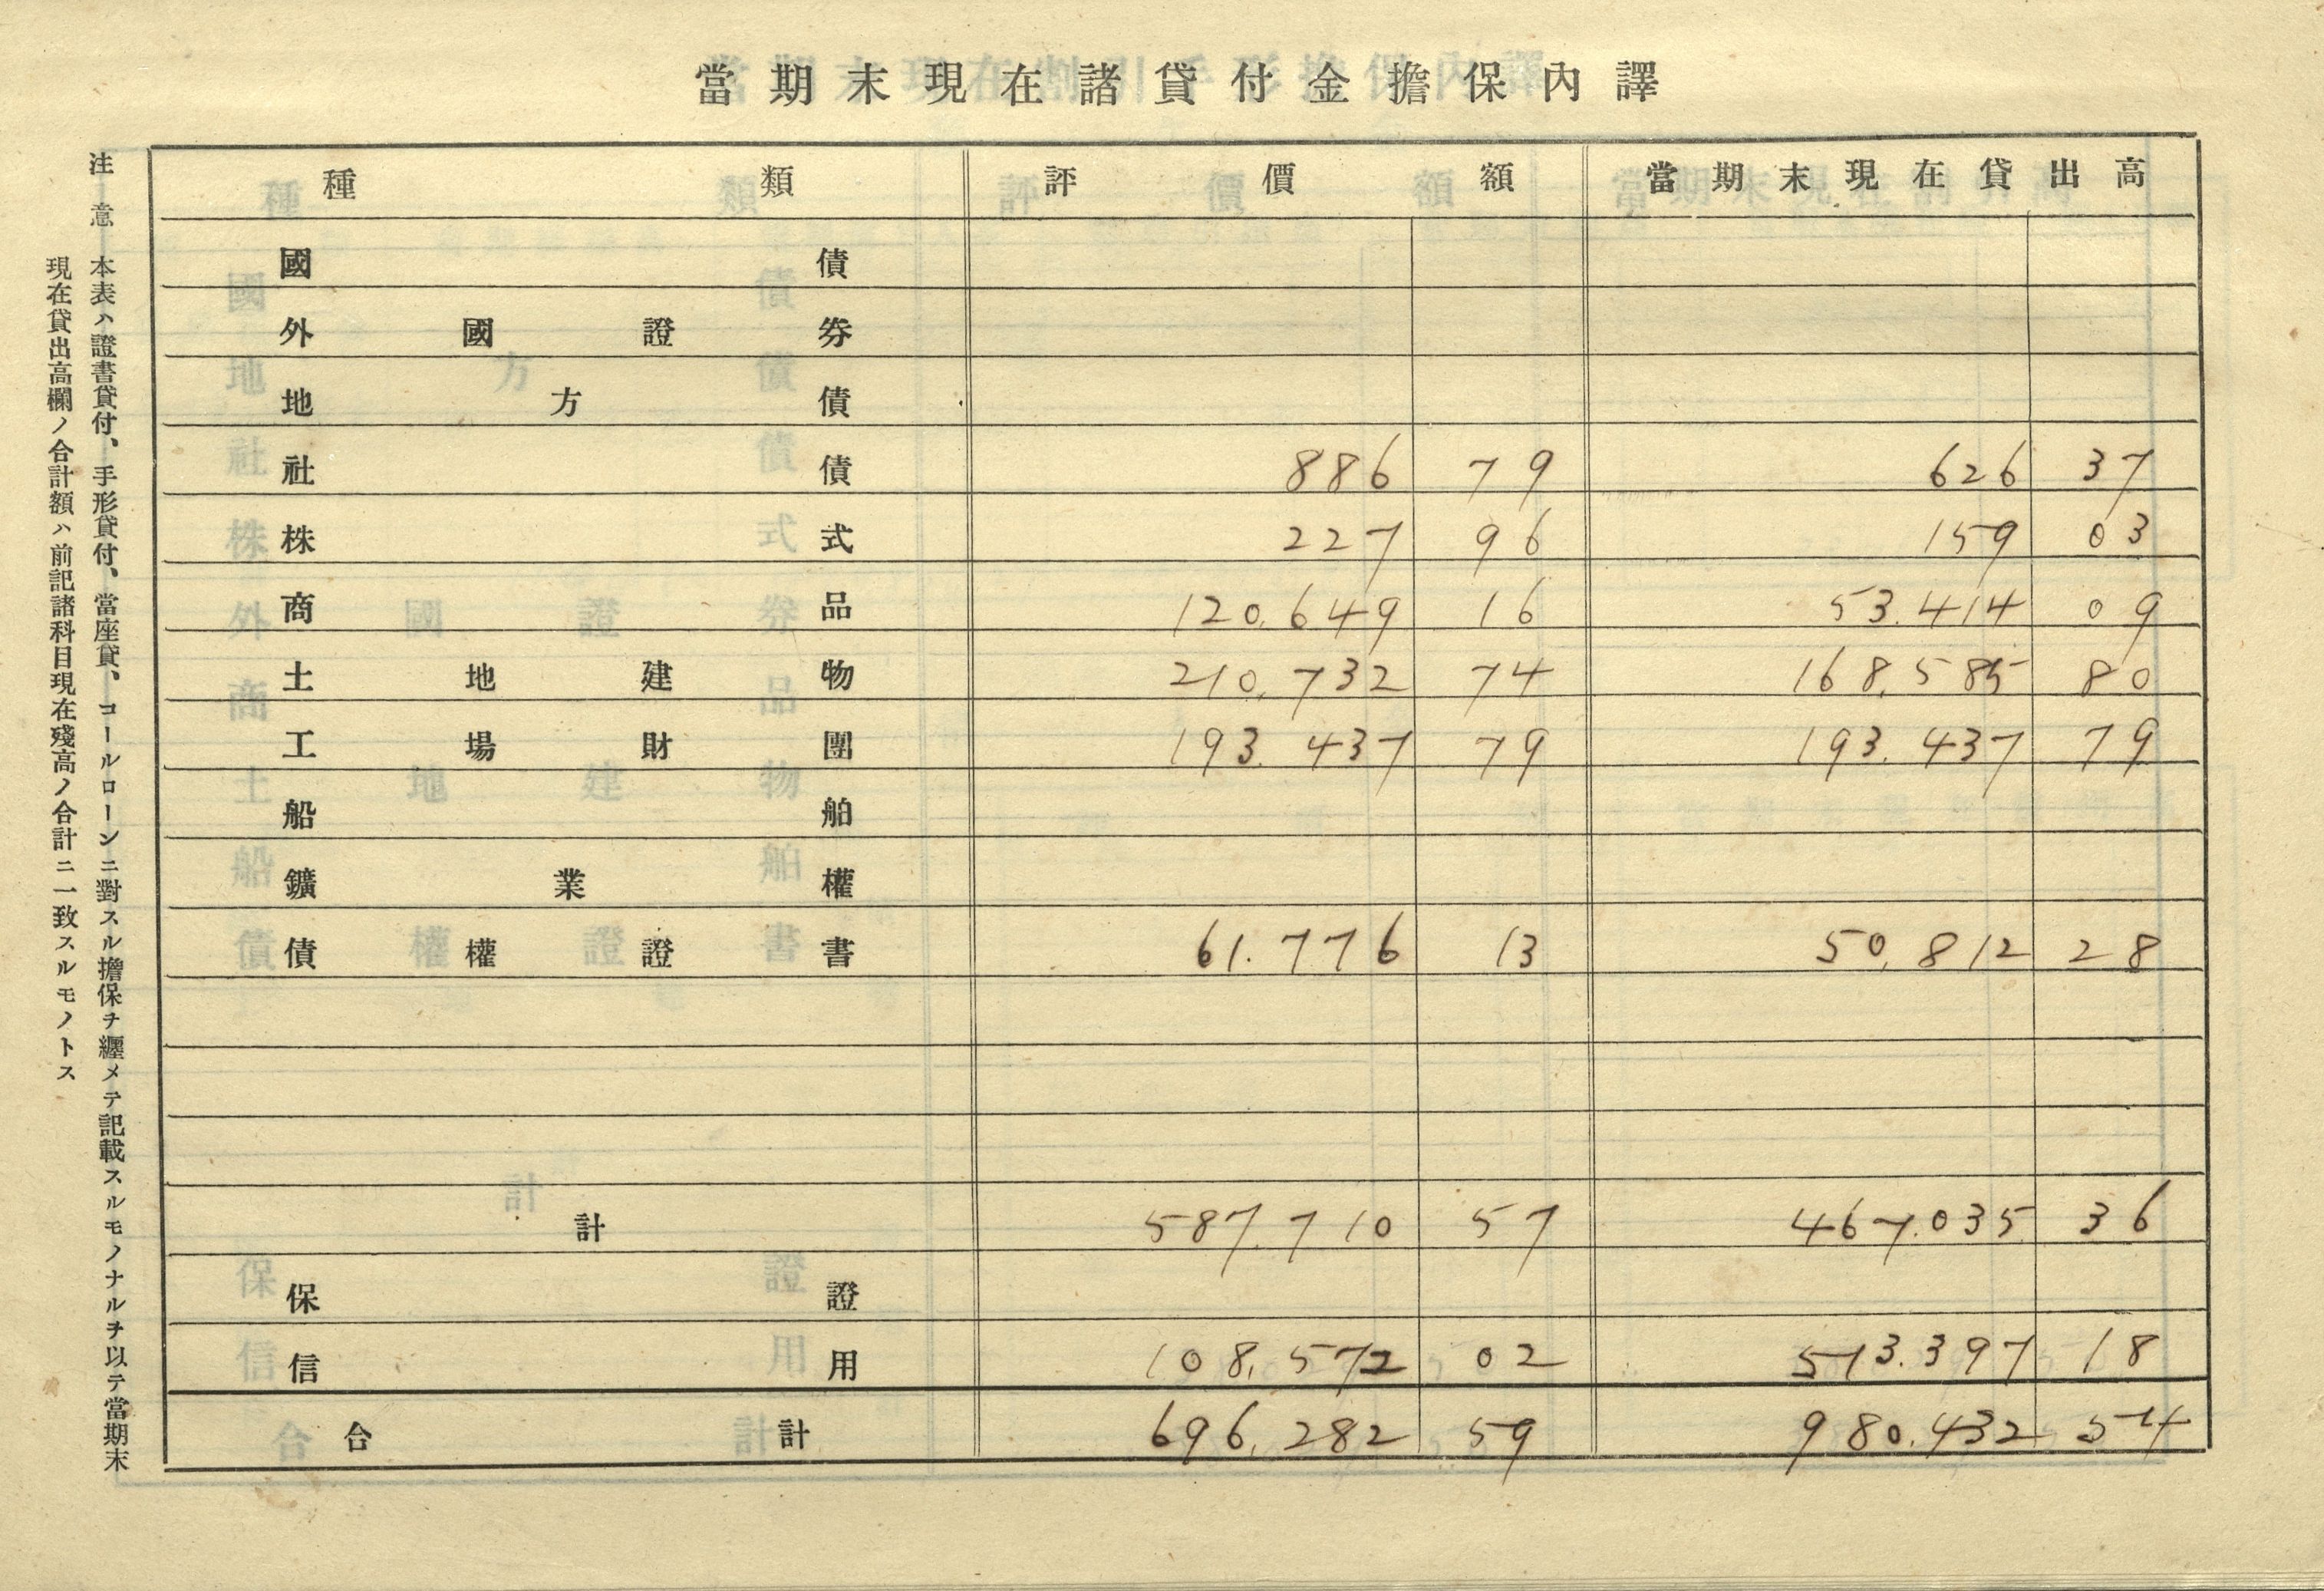 當期末現在諸貸付金擔保內譯
種類 評價額 當期末現在貸出高
國債
外國證券
地方債
社債 886 79 626 37
株式 227 96 159 03
商品 120,649 16 53.414 09
土地建物 210,732 74 168,585 80
工場財團 193.437 79 193.437 79
船舶
鑛業權
債權證書 61.776 13 50,812 28
計 587.710 57 467.035 36
保證
信用 108,572 02 513.397 18
合計 696,282 59 980.432 54
注意 本表ハ證書貸付、手形貸付、當座貸、コールローンニ對スル擔保ヲ纒メテ記載スルモノナルヲ以テ當期末
現在貸出高欄ノ合計額ハ前記諸科目現在殘高ノ合計ニ一致スルモノトス